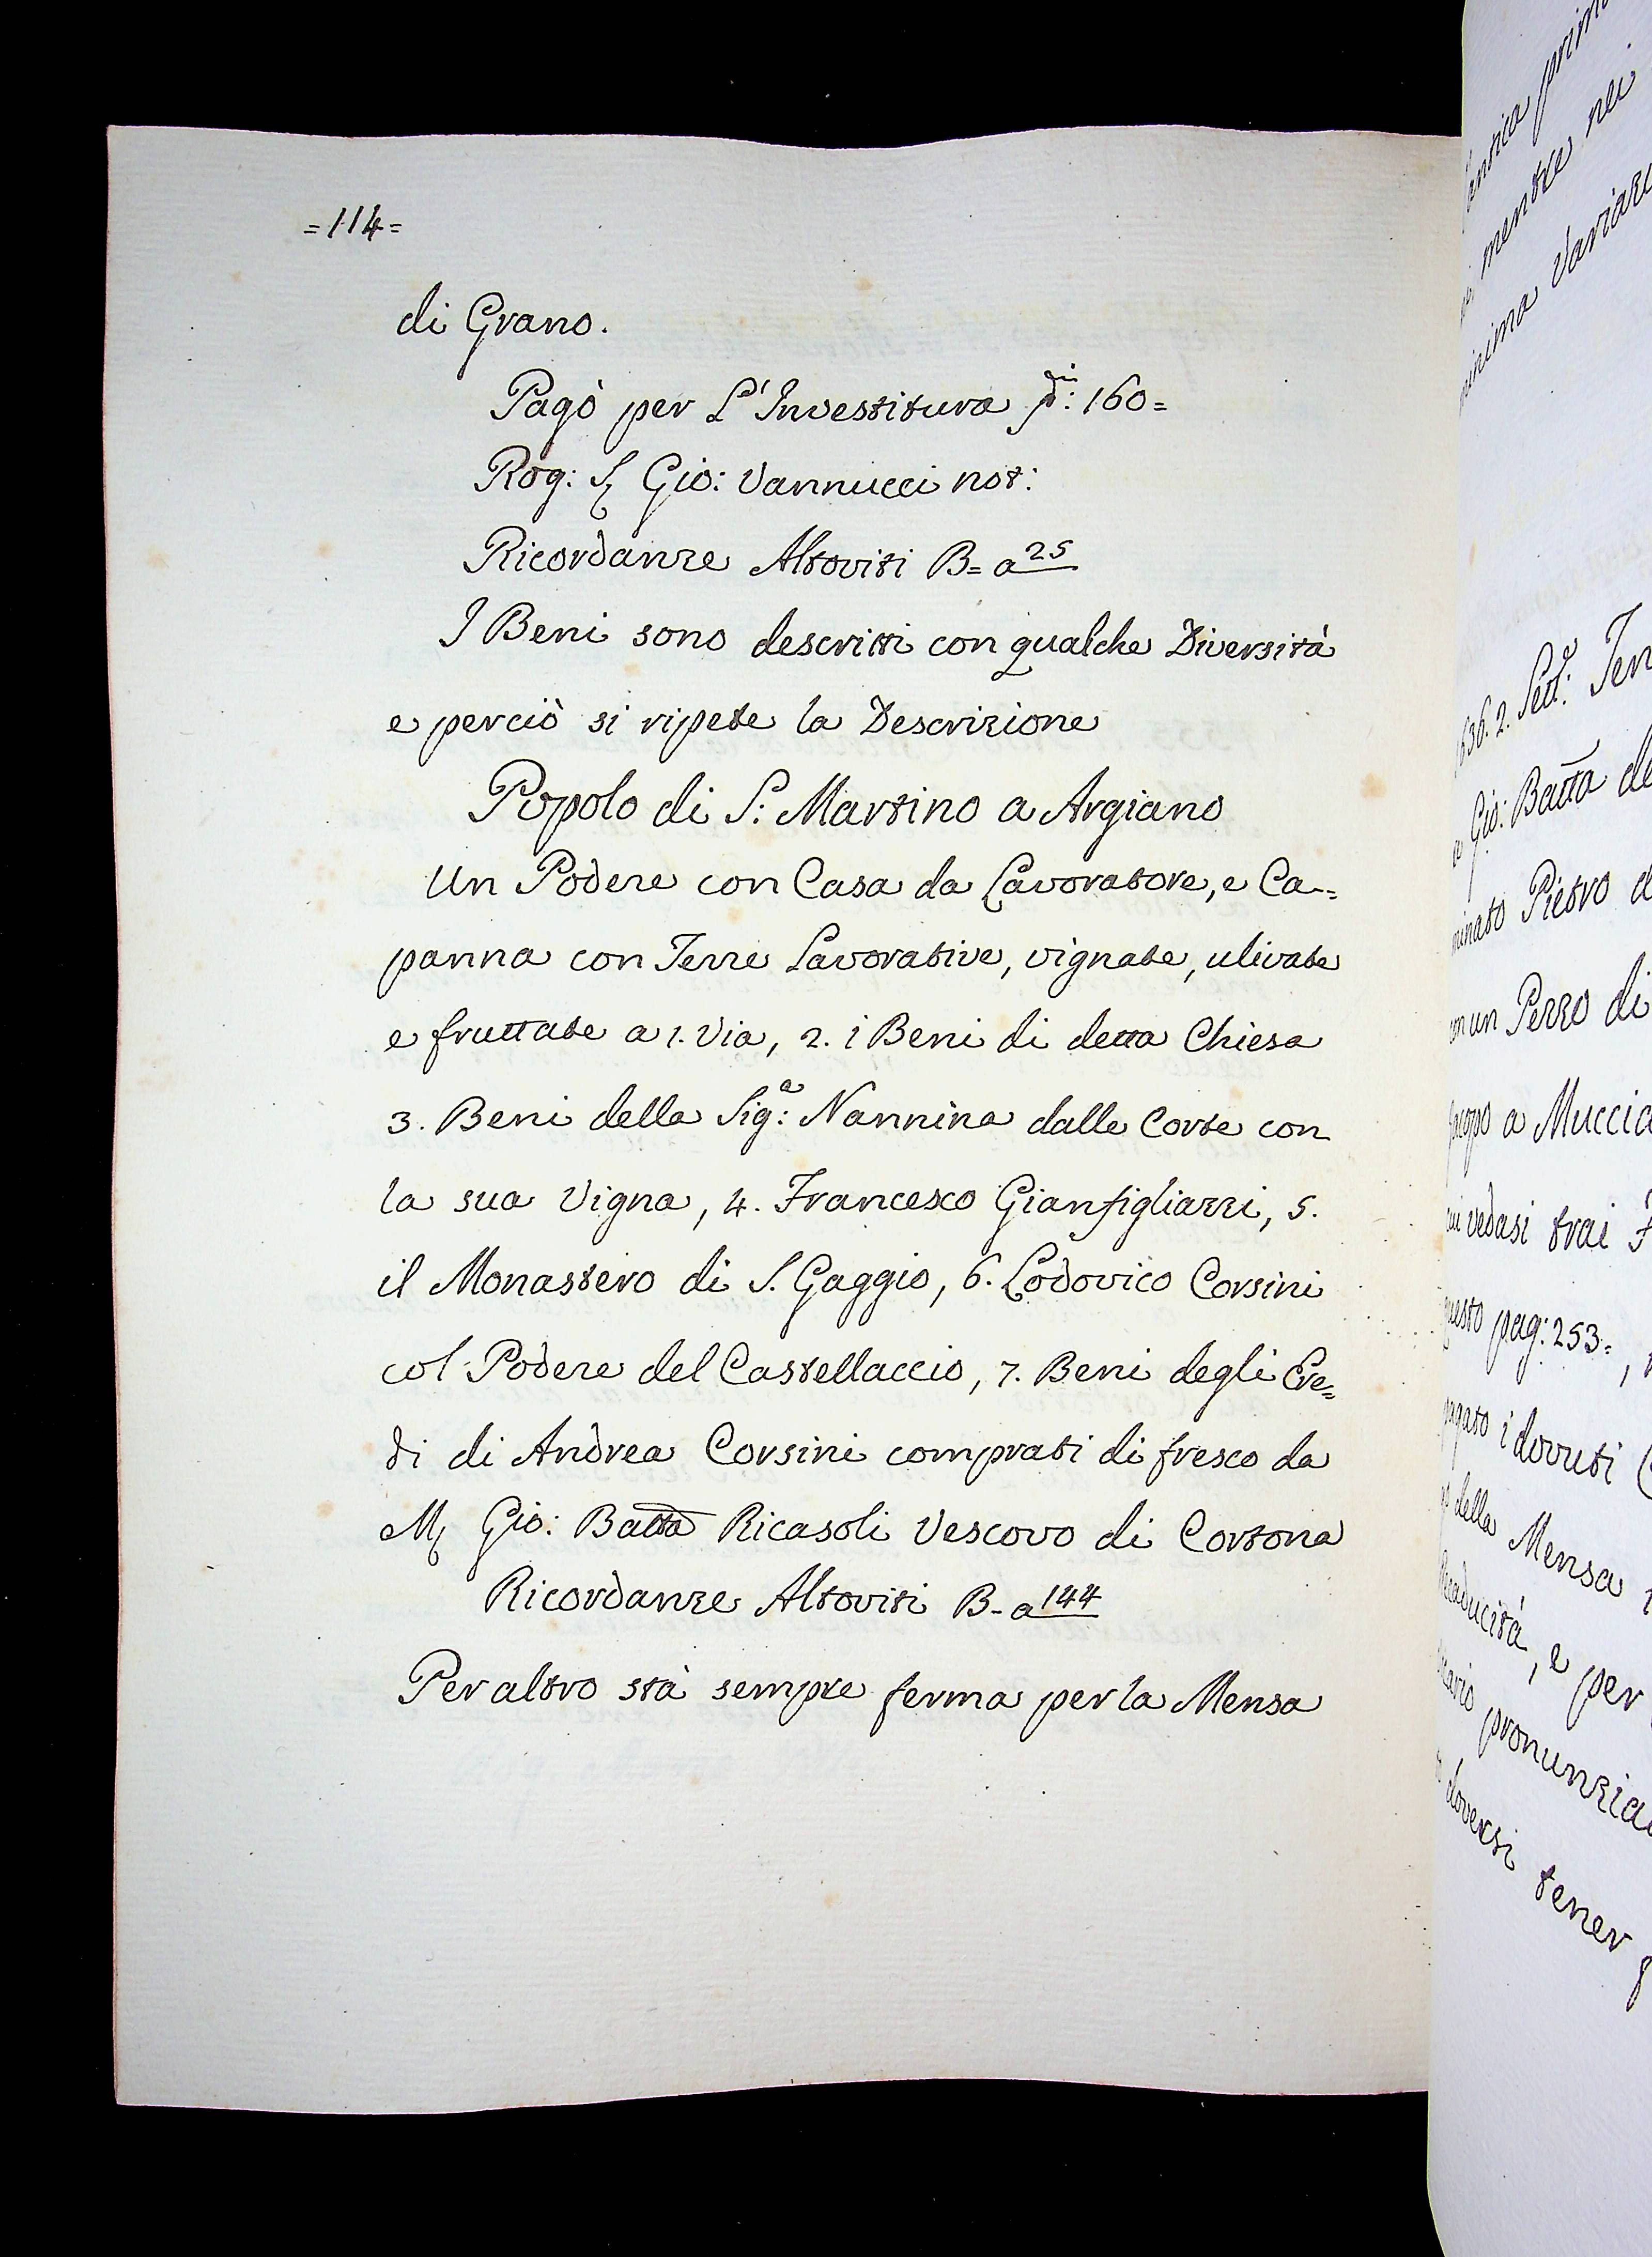 =114=
di Grano.
Pagò per L'Investitura 160=
Rog: S Gio: Vannucci not:
Ricordanze Altoviti B= a 25
I Beni sono descritti con qualche Diversità
e perciò si ripete la Descrizione
Popolo di S: Martino a Argiano
Un Podere con Casa da Lavoratore, e Ca-
panna con Terre Lavorative, vignate, ulivate
e fruttate a 1. Via, 2. i Beni di detta Chiesa
3. Beni della Sig:ª Nannina dalle Corte con
la sua Vigna, 4. Francesco Gianfigliazzi, 5.
il Monastero di S. Gaggio, 6. Lodovico Corsini
col Podere del Castellaccio, 7. Beni degli Ere=
di di Andrea Corsini comprati di fresco da
M Gio: Batta Ricasoli Vescovo di Cortona
Ricordanze Altoviti B- a 144
Per altro stà sempre ferma per la Mensa
mentre nei
2. Sett:e
Gio: Batta
Pietro
un Pezzo di
a Muccia
vedasi trai
pag: 253=
i dovuti
della Mensa
, e per
doversi tener